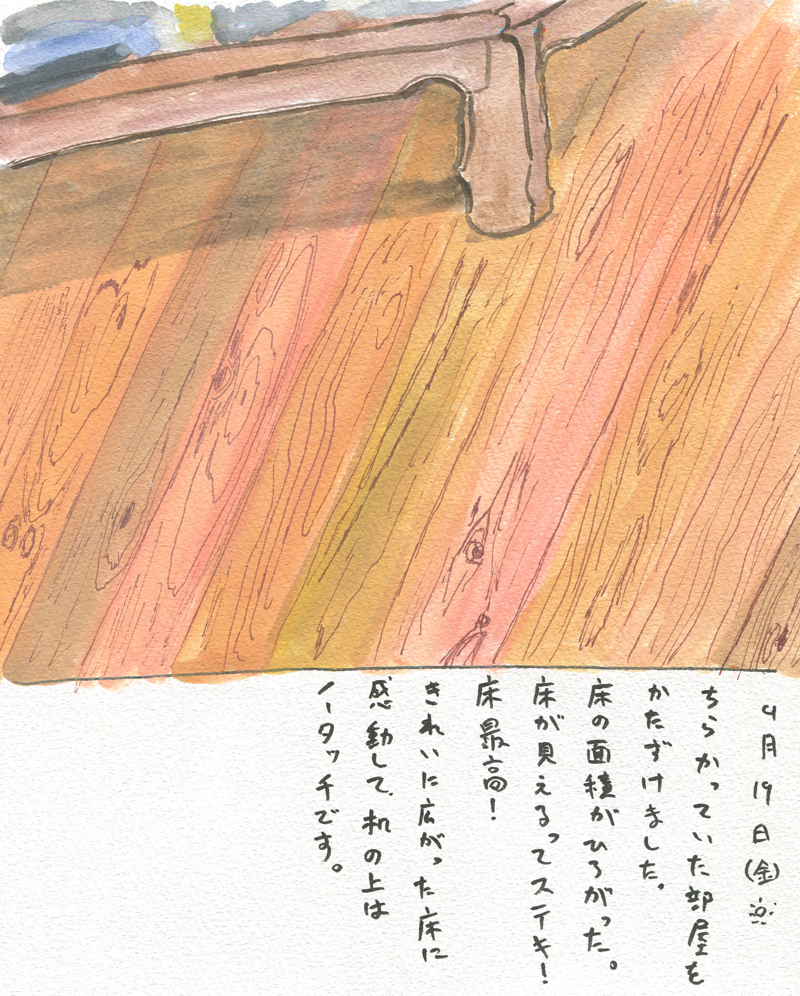 9月19日(金)
ちらかっていた部屋を
かたずけました。
床の面積がひろがった。
床が見えるってステキ!
床最高!
きれいに広がった床に
感動して、机の上は
ノータッチです。